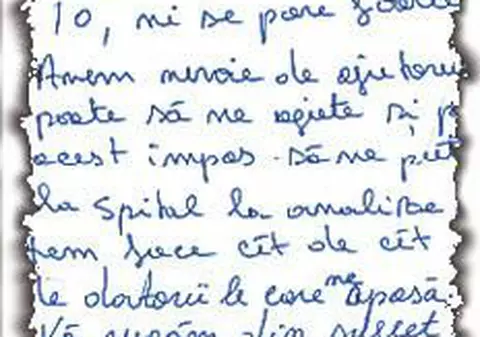 10, mi se pare foarte
Avem nevoie de ajutorul
poate să ne ajute și p
acest impas să ne put
la Spital la analize
tem face cît de cît
le datorii le care ne apasă.
Vă rugăm din suflet